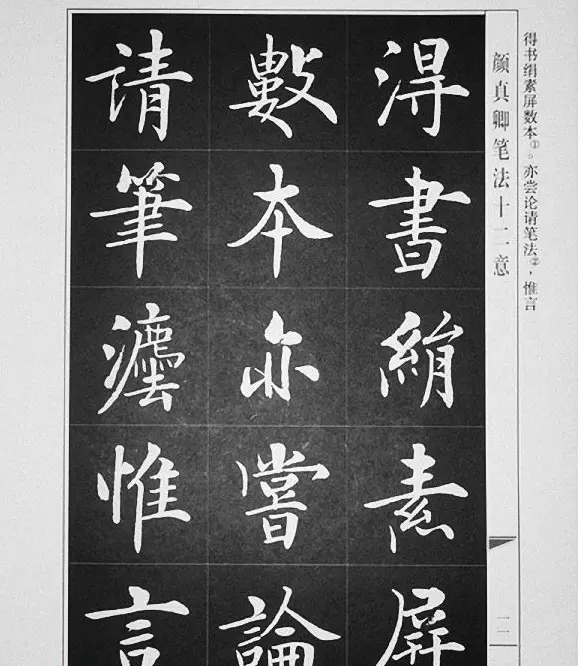 得书绢素屏数本①。亦尝论请笔法②，惟言
颜真卿笔法十二意
二
淂書絹素屏
數本亦嘗論
請筆灋惟言